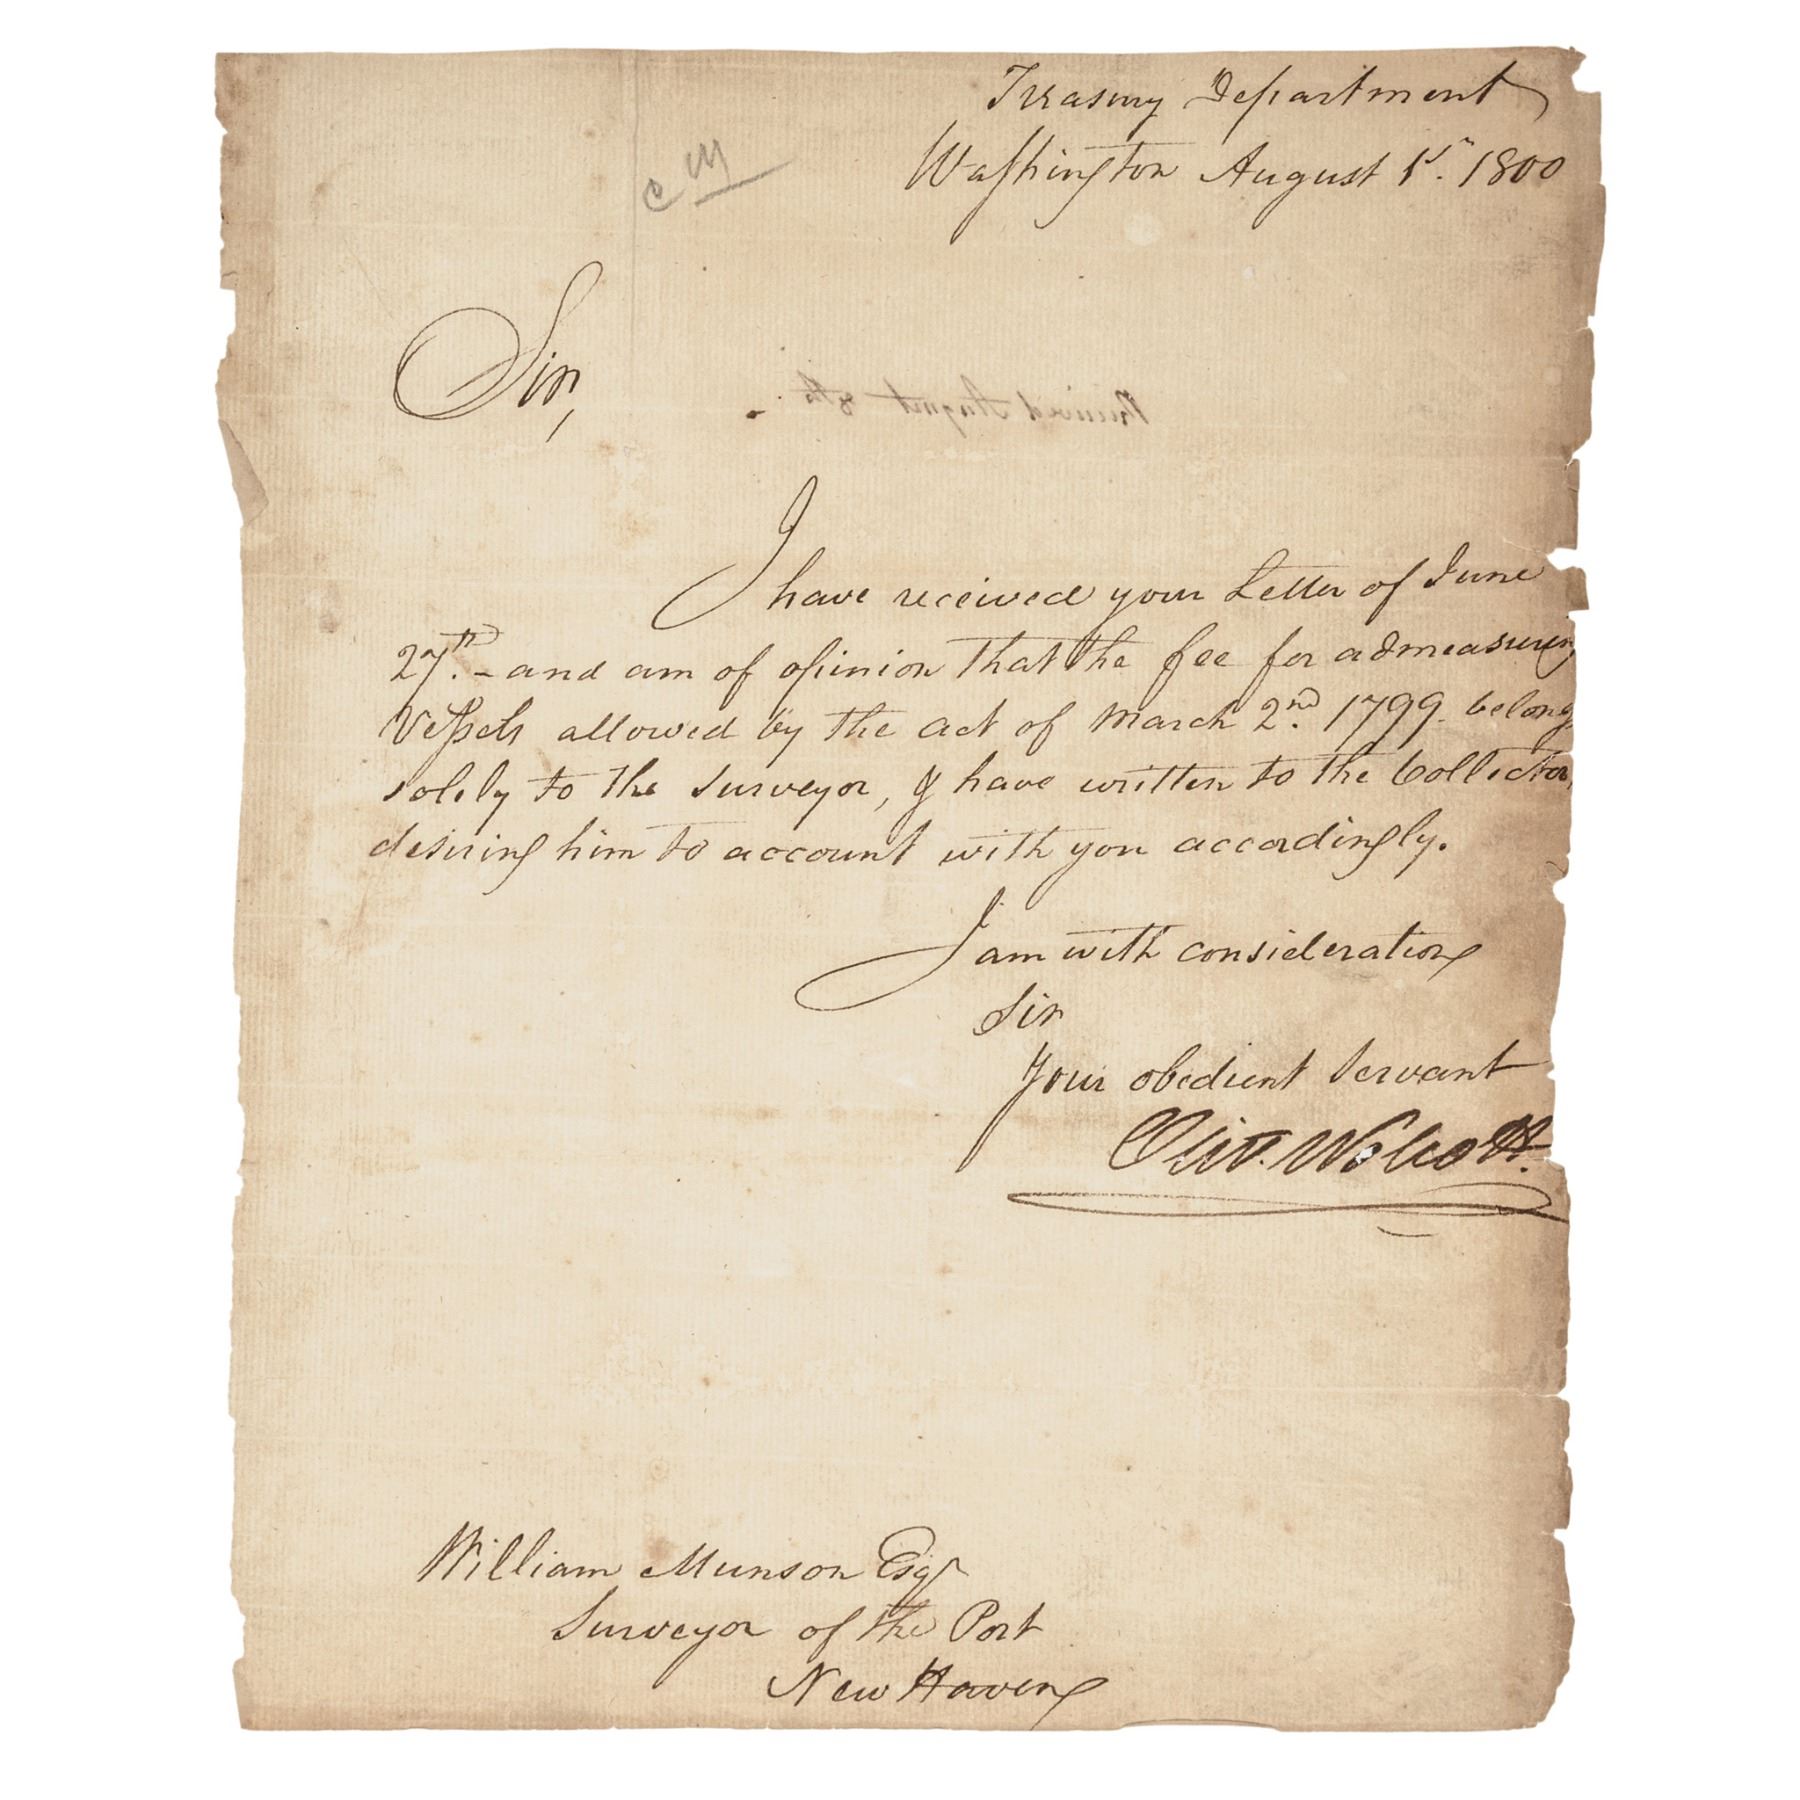 Treasury Department
Washington August 1st. 1800
Sir,
Received August 8th
I have received your Letter of June
27th. - and am of opinion that the fee for admeasuring
Vessels allowed by the act of March 2nd. 1799. belong
solely to the surveyor, I have written to the Collector,
desiring him to account with you accordingly.
I am with consideration
Sir
Your obedient Servant
Oliv. Wolcott.
William Munson Esqr
Surveyor of the Port
New Haven